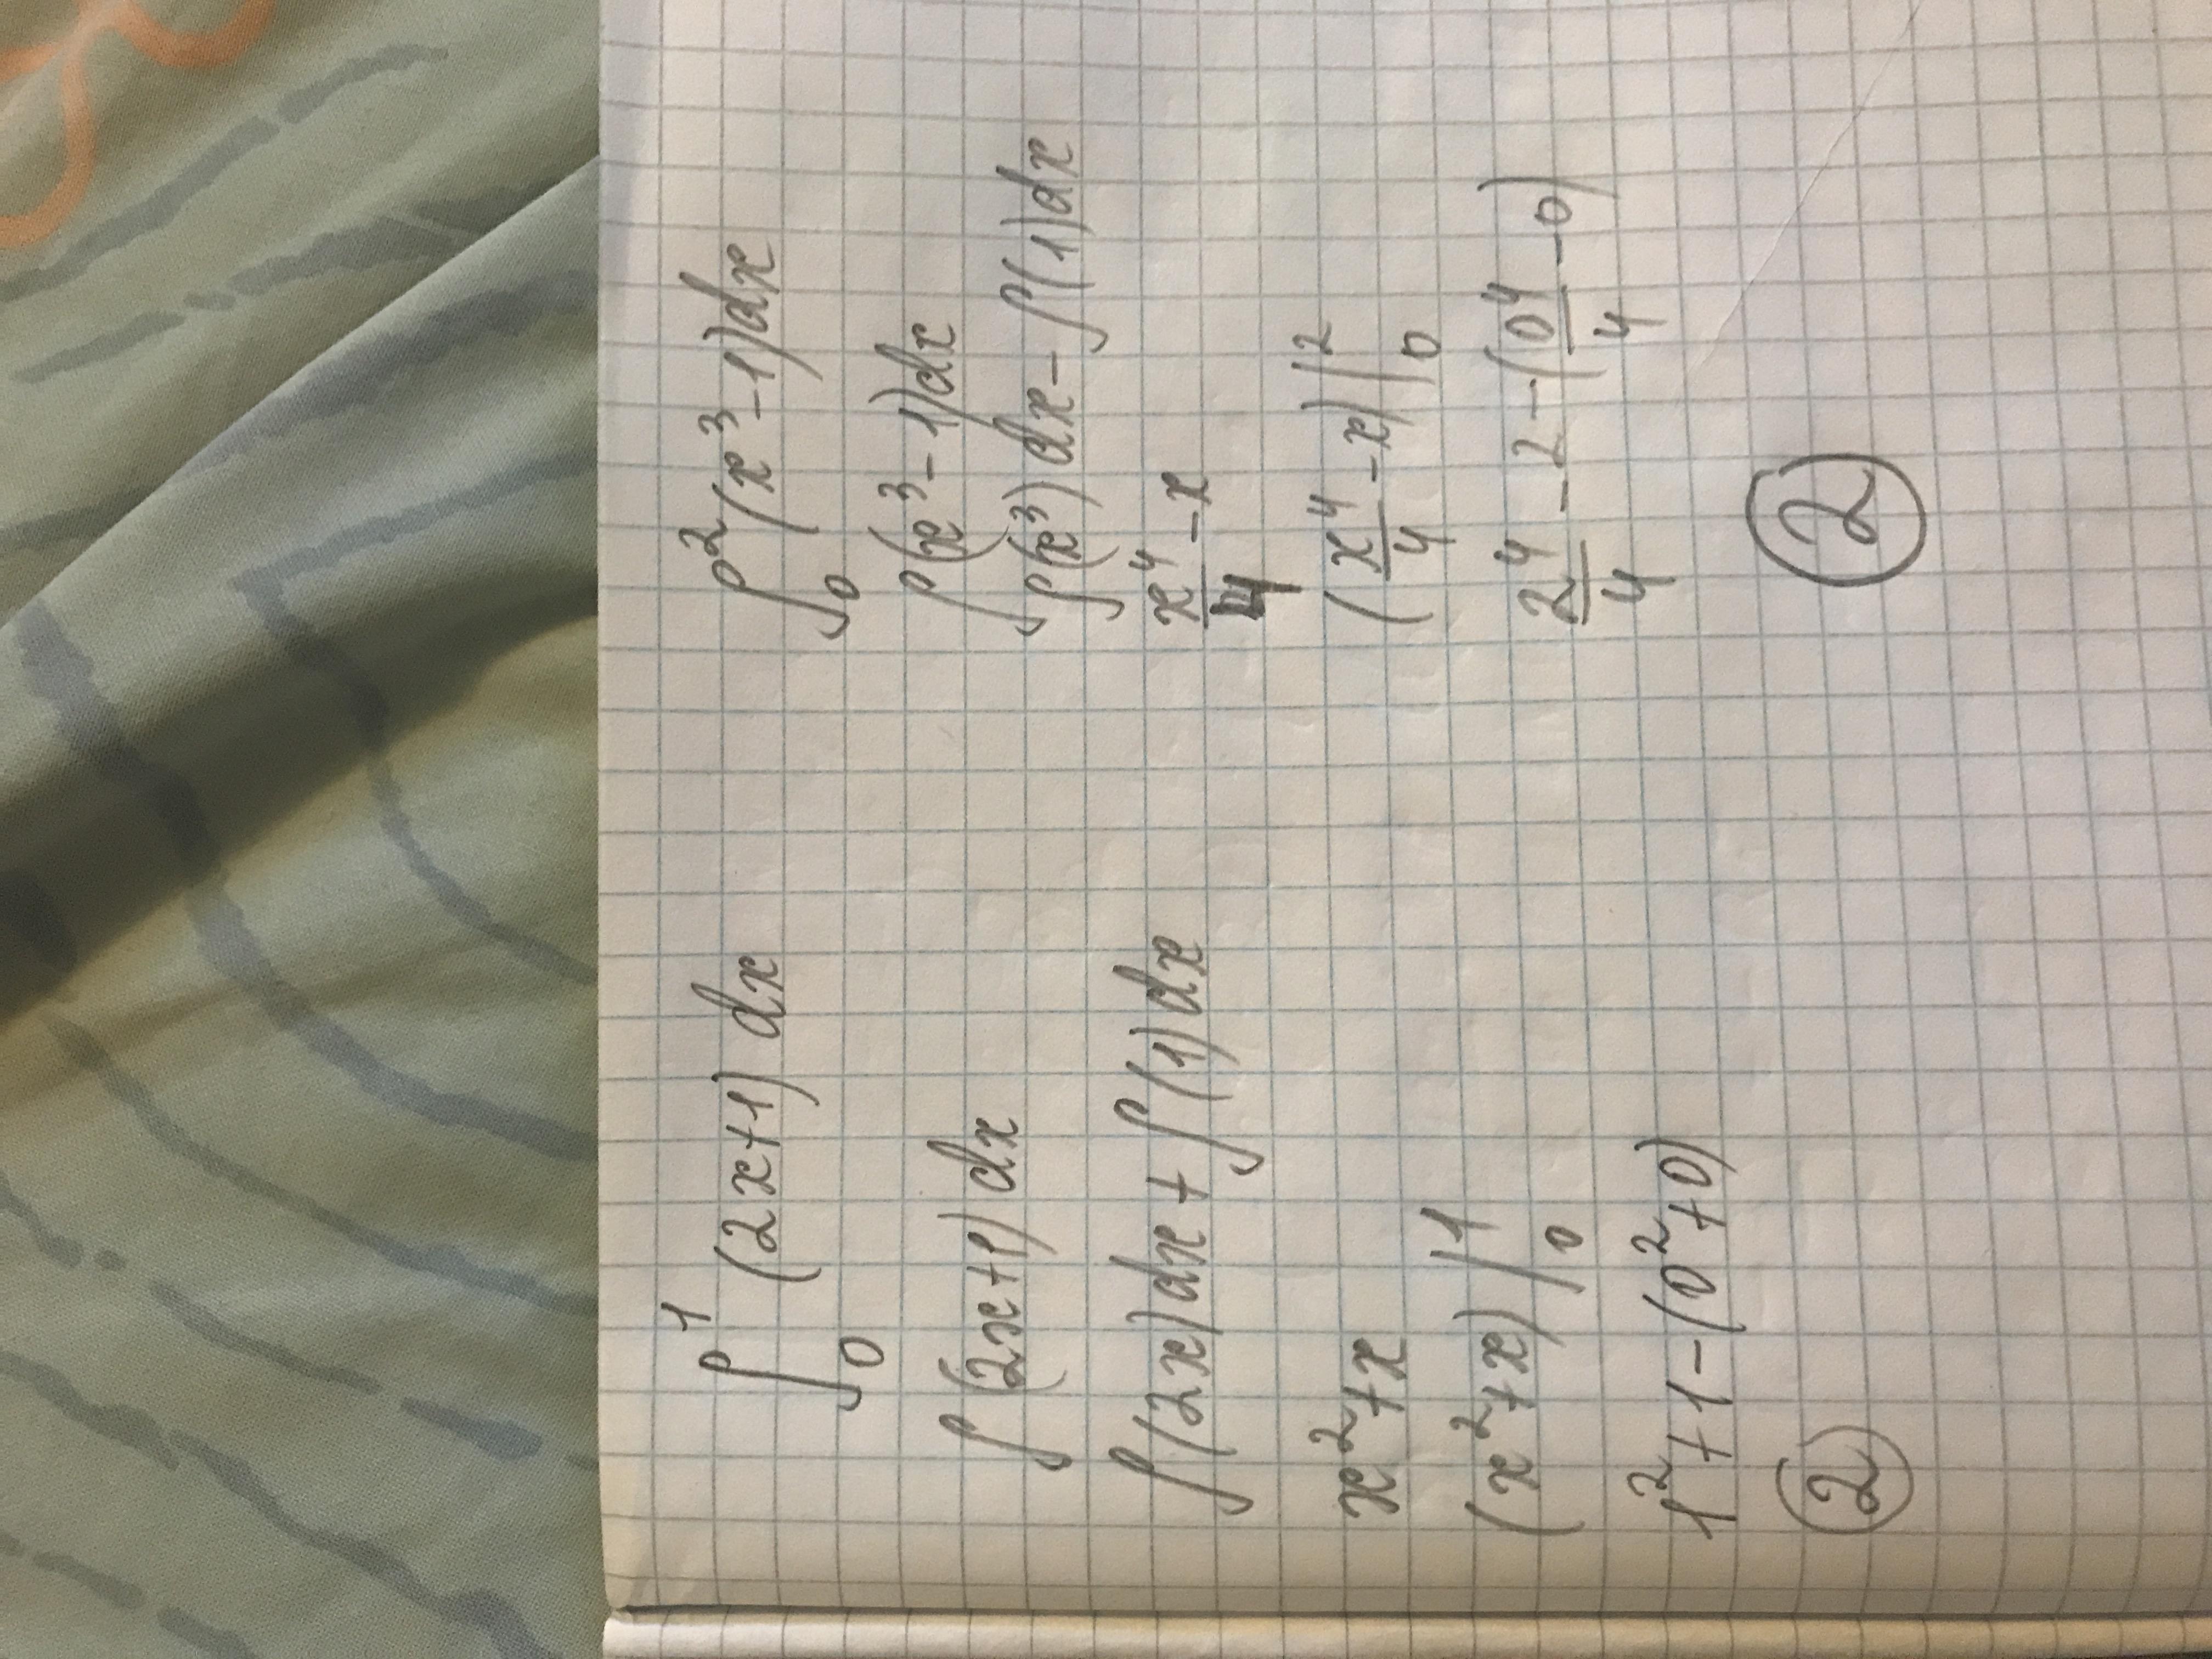 ∫₀¹ (2x+1) dx
∫(2x+1) dx
∫(2x)dx + ∫(1)dx
x²+x
(x²+x) |₀¹
1²+1-(0²+0)
2
∫₀²(x³-1)dx
∫(x³-1)dx
∫(x³)dx-∫(1)dx
x⁴/4 -x
(x⁴/4 -x)|₀²
2⁴/4 -2-(0⁴/4 -0)
2